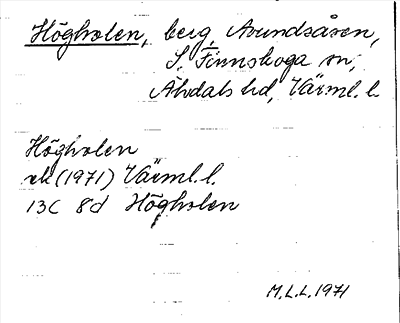 Högholen, berg, Avundsåsen,
S. Finnskoga sn,
Älvdals hd, Värml. l.
Högholen
ek (1971) Värml. l.
13C 8d Högholen
M.L.L. 1971